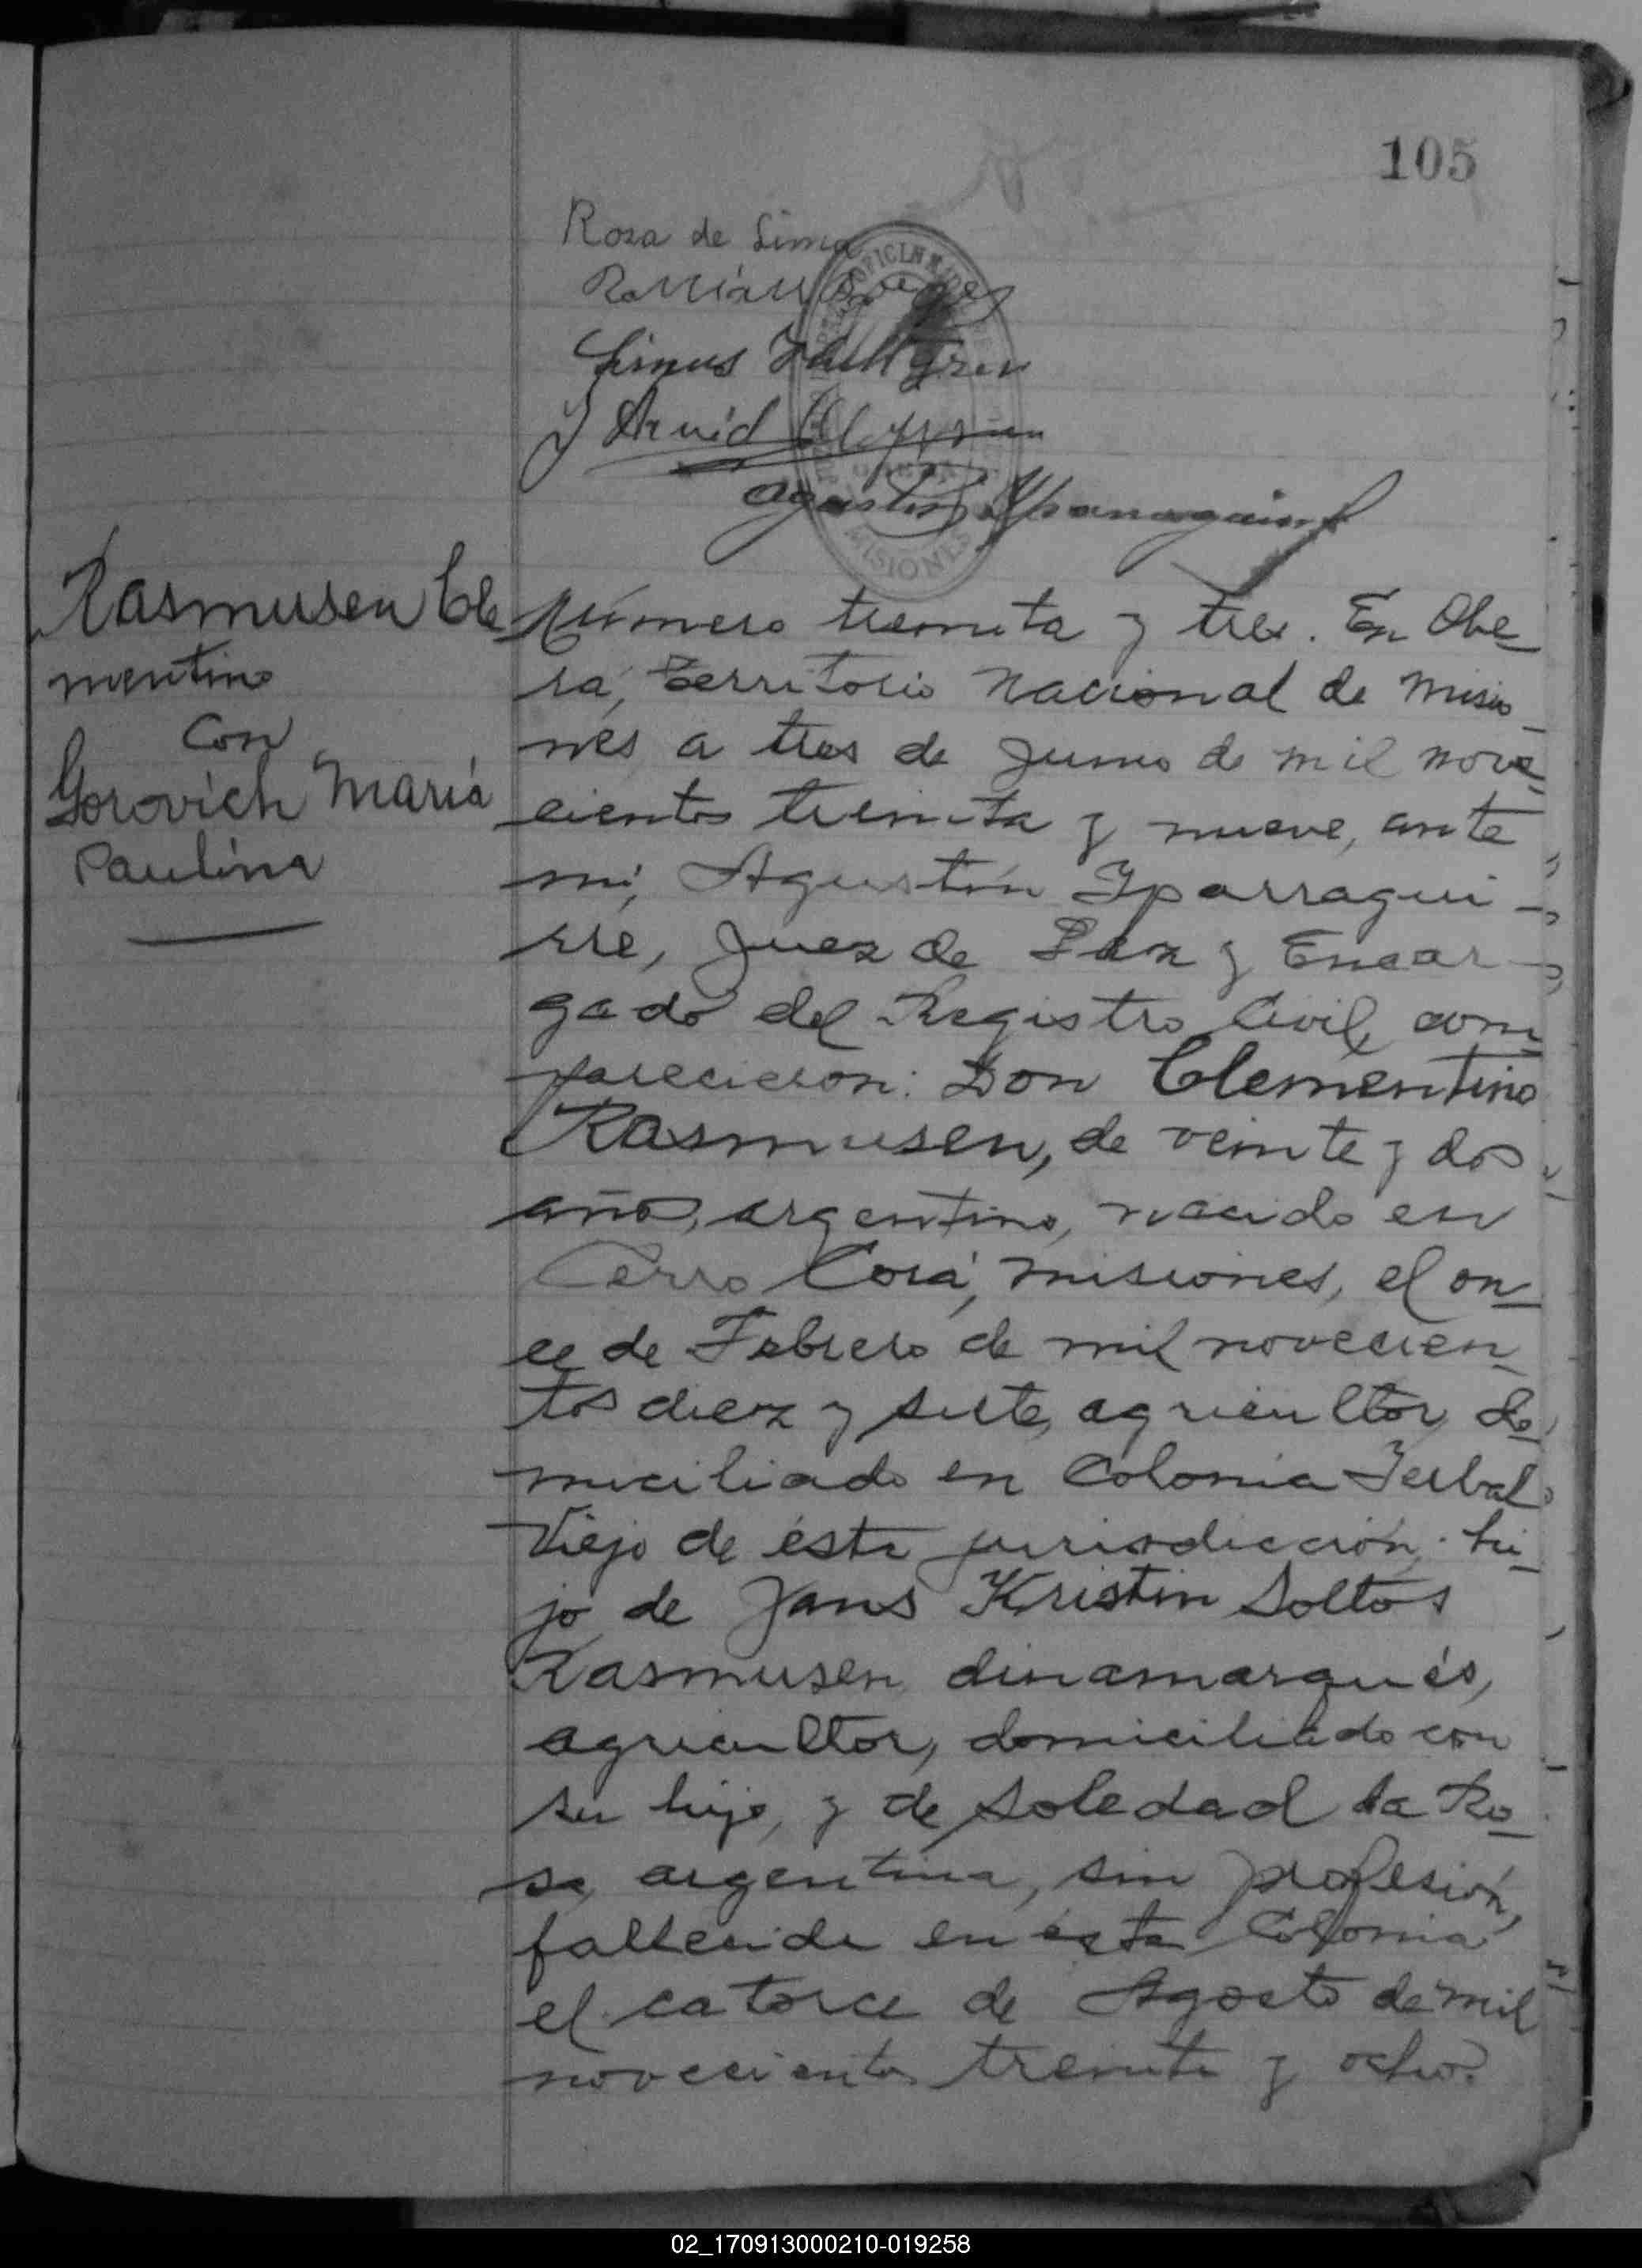 105
Rosa de Lima
Román
Linus
Arvid
Agustin Yparraguirre
OFICINA
MISIONES
Rasmusen Cle
mentino
Con
Gorovich María
Paulina
Número treinta y tres. En Obe
rá, Territorio Nacional de Misio
nes a tres de Junio de mil nove
cientos treinta y nueve, ante
mi, Agustín Yparragui
rre, Juez de Paz y Encar
gado del Registro Civil, com
parecieron: Don Clementino
Rasmusen, de veinte y dos
años, argentino, nacido en
Cerro Corá, Misiones, el on
ce de Febrero de mil novecien
tos diez y siete, agricultor, do
miciliado en Colonia Yerbal
Viejo de ésta jurisdicción; hi
jo de Jans Kristin Soltos
Rasmusen, dinamarqués,
agricultor, domiciliado con
su hijo, y de Soledad da Ro
sa, argentina, sin profesión,
fallecida en ésta Colonia
el catorce de Agosto de mil
novecientos treinta y ocho.
02_170913000210-019258